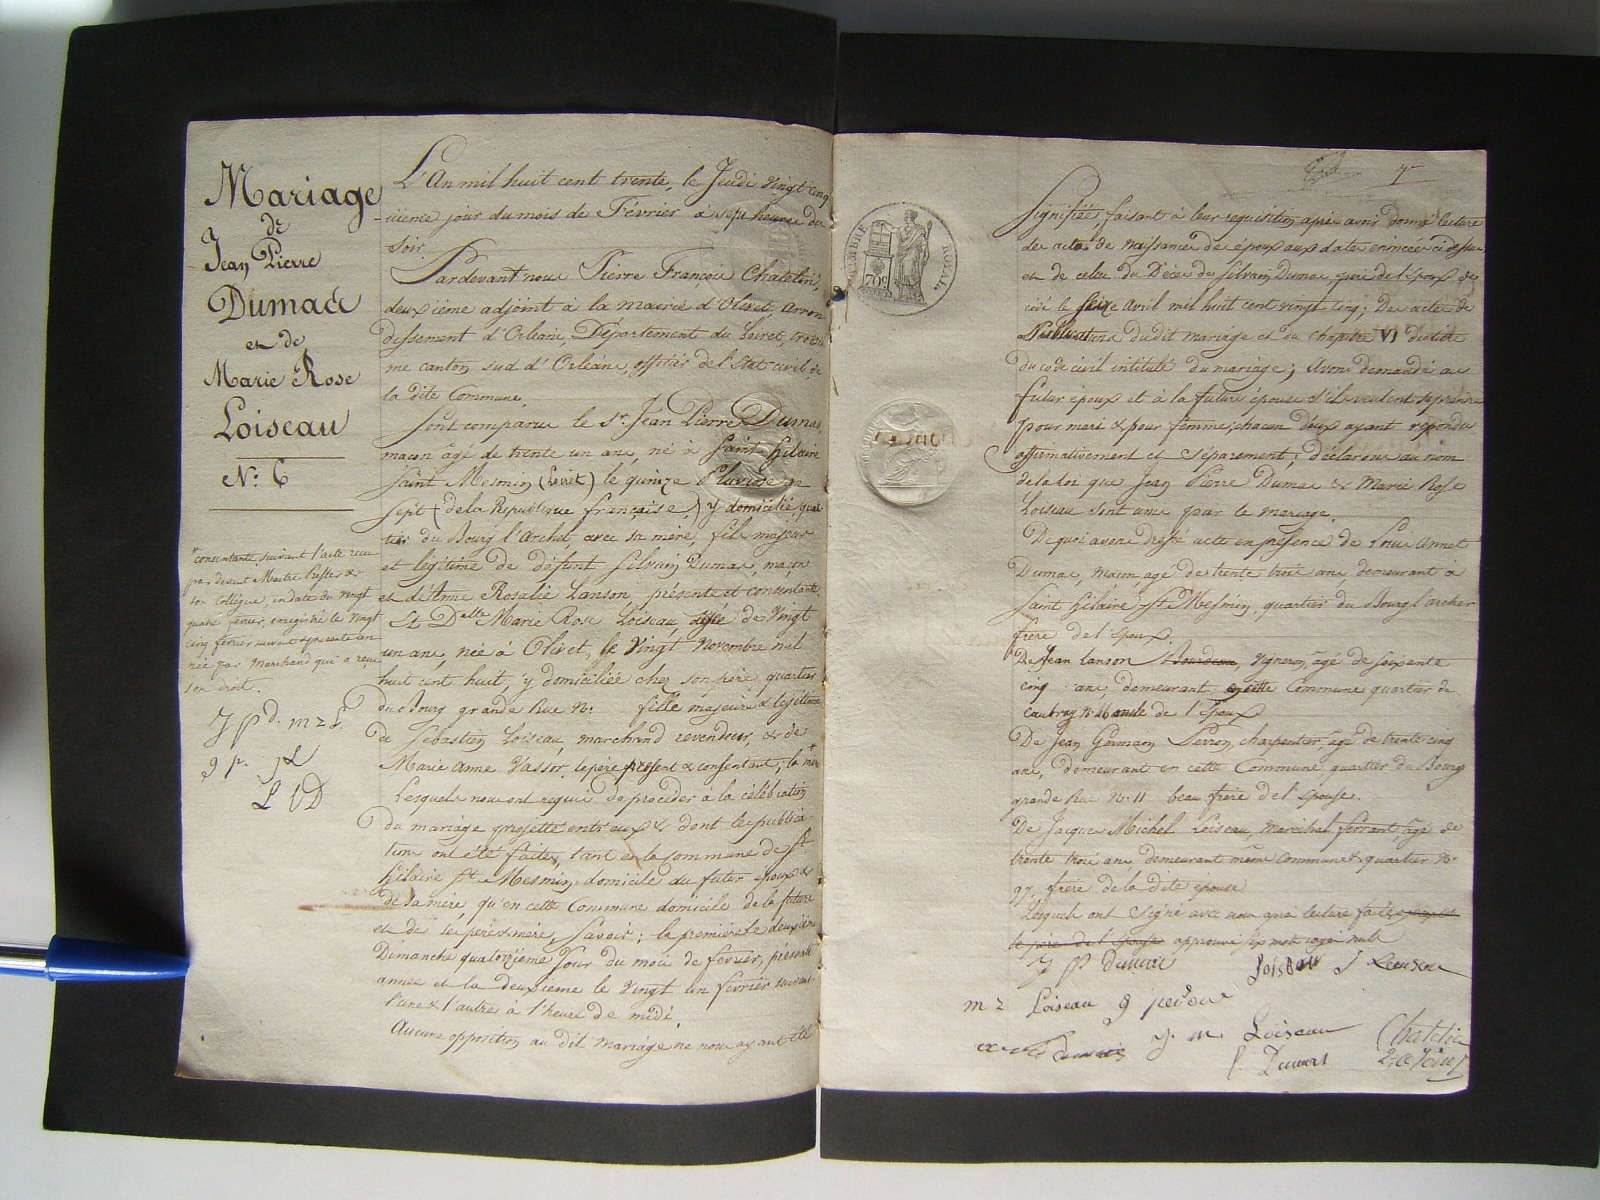 Mariage
de
Jean Pierre
Dumas
et de
Marie Rose
Loiseau
N.º 6
consentante, suivant l'acte reçu
par devant Maitre
son Collègue, en date du vingt
quatre février, enregistré le vingt
cinq février
par Marchand qui a reçu
son droit.
J p d. m r L.
g p. J L
L l D
L'An mil huit cent trente, le Jeudi vingt cinq
uième jour du mois de Février à sept heures du
soir.
Pardevant nous Pierre François Chatelin,
deuxième adjoint à la mairie d'Olivet, arron
dissement d'Orléans, Département du Loiret, troisiè
me canton sud d'Orléans, officier de l'Etat civil de
la dite Commune,
Sont comparus le Sr. Jean Pierre Dumas,
maçon agé de trente un ans, né à Saint Hilaire
Saint Mesmin (Loiret) le quinze Pluviose an
Sept (de la République française,) y domicilié, quar
tier du Bourg l'Archer, avec sa mère, fils majeur
et légitime de défunt Silvain Dumas, maçon
et d'Anne Rosalie Lanson, présente et consentante.
Et Delle Marie Rose Loiseau, agée de vingt
un ans, née à Olivet, le vingt Novembre mil
huit cent huit, y domiciliée chez son père quartier
du Bourg grande Rue N.º fille majeure & légitime
de Sébastien Loiseau, marchand revendeur, & de
Marie Anne Vassor, le père présent & consentant, la mère
Lesquels nous ont requis de procéder à la célébration
du mariage projetté entr'eux & dont les publica-
tions ont été faites, tant en la commune de St
Hilaire St. Mesmin, domicile du futur époux &
de sa mère, qu'en cette Commune domicile de la future
et de ses père & mère, Savoir; la première le deuxième
Dimanche quatorzième Jour du mois de février, présente
année et la deuxième le vingt un février suivant
l'une & l'autre à l'heure de midi.
Aucune opposition au dit mariage ne nous ayant été
7
TIMBRE ROYAL
70c
Signifiée, faisant à leur requisition après avoir donné lecture
des actes de naissance des époux aux dates énoncées ci dessus
et de celui du Décès de Silvain Dumas, père de l'Epoux dé
cédé le seize avril mil huit cent vingt cinq; Des actes de
Publications du dit mariage et du chapitre VI du titre
du code civil intitulé du mariage; Avons demandé au
futur époux et à la future épouse s'ils veulent se prendre
pour mari & pour femme; chacun d'eux ayant répondu
affirmativement et séparément; déclarons au nom
de la loi que Jean Pierre Dumas & Marie Rose
Loiseau sont unis par le mariage.
De quoi avons dressé acte en présence de Louis Annet
Dumas, maçon, agé de trente trois ans, demeurant à
Saint Hilaire St. Mesmin, quartier du Bourg l'archer
frère de l'époux.
De Jean Lanson Vigneron, agé de soixante
cinq ans, demeurant en cette Commune quartier de
Caubray N.º oncle de l'Epoux
De Jean Germain Perron, charpentier, agé de trente cinq
ans, demeurant en cette Commune quartier du Bourg
grande Rue N.º 11 beau frère de l'épouse.
De Jacques Michel Loiseau, maréchal ferrant, agé de
trente trois ans, demeurant même Commune & quartier N.º
97, frère de la dite épouse
Lesquels ont signé avec nous après lecture faite
le père de l'épouse approuvé six mots rayés nuls
J P dumas Loiseau J Lanson
m r Loiseau g perron
dumas J. m. Loiseau Chatelin
l. Dumas 2e adjoint